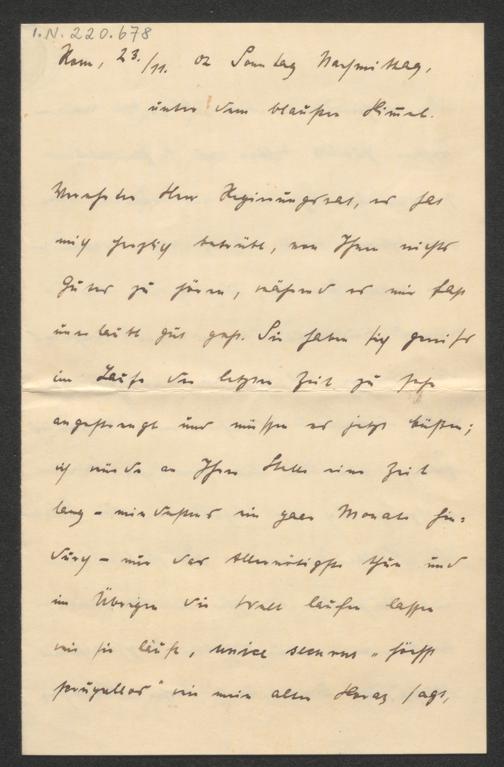 I.N. 220.678
Rom, 23./11. 02 Sonntag Nachmittag,
unter dem blausten Himmel.
Verehrter Herr Regierungsrat, es hat
mich herzlich betrübt, von Ihnen nichts
Gutes zu hören, während es mir fast
unerlaubt gut geht. Sie haben sich gewiss
im Laufe der letzten Zeit zu sehr
angestrengt und müssen es jetzt büßen;
ich würde an Ihrer Stelle eine Zeit
lang – mindestens ein paar Monate hin=
durch – nur das Allernötigste thun und
im Übrigen die Welt laufen lassen
wie sie läuft, unice securus „höchst
" wie mein alter Horaz sagt,